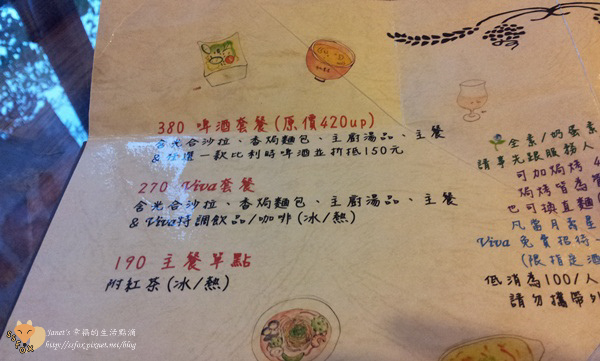 380 啤酒套餐(原價420up)
含光合沙拉、香焗麵包、主廚湯品、主餐
&任選一款比利時啤酒並折抵150元
270 Viva套餐
含光合沙拉、香焗麵包、主廚湯品、主餐
&Viva特調飲品/咖啡(冰/熱)
190 主餐單點
附紅茶(冰/熱)
全素/奶蛋素
請事先跟服務人
可加焗烤
焗烤皆為
也可換直麵
凡當月壽星
Viva 免費招待一
(限指定酒
低消為100/人
請勿攜帶外
Janet's 幸福的生活點滴
http://ssfox.pixnet.net/blog
SSFOX